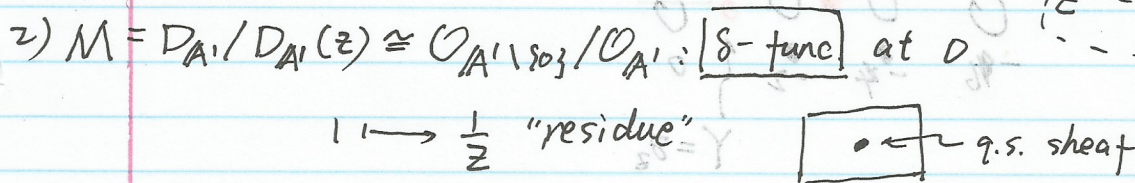 2) M = D_{A^1} / D_{A^1}(z) ≅ O_{A^1\setminus\{0\}} / O_{A^1} : δ-func at 0.
1 ↦ 1/z "residue" q.s. sheaf